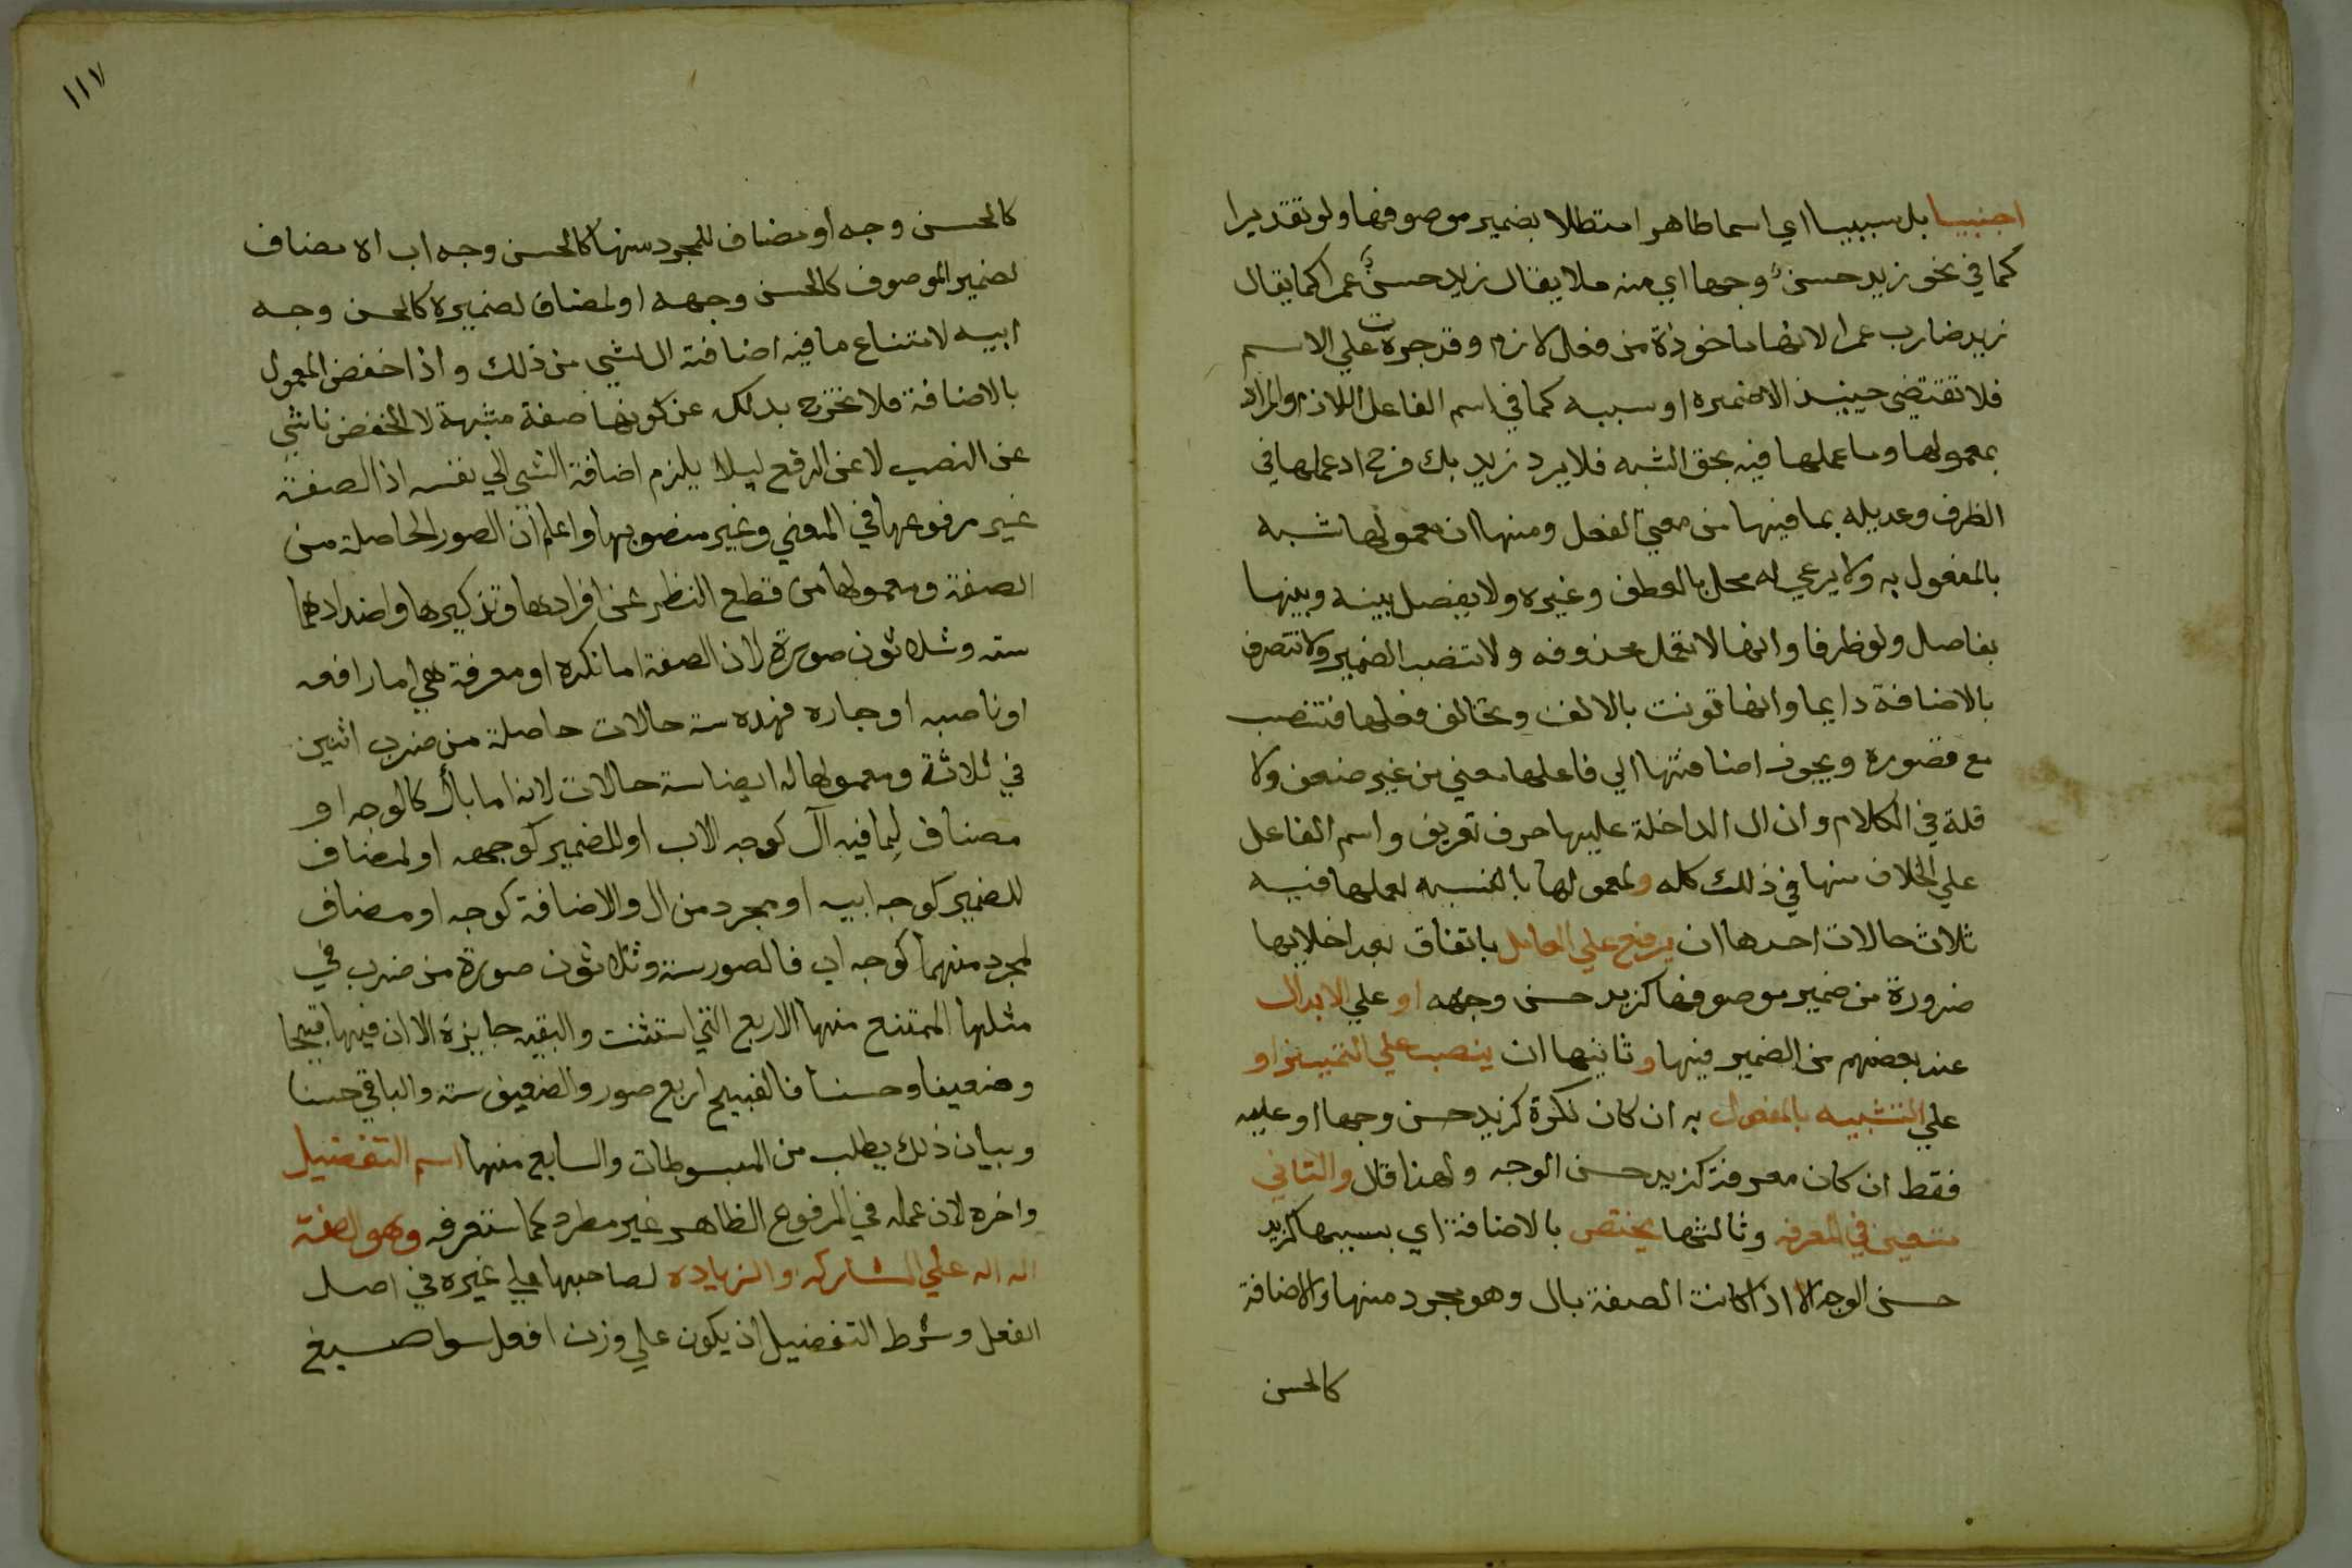 اجنبيا بل سببيا اي اسما ظاهرا متصلا بضمير موصوفها ولو تقديرا
كما في نحو زيد حسنٌ وجها اي منه فلا يقال زيد حسنٌ عمرا كما يقال
زيد ضارب عمرا لانها ماخوذة من فعل لازم وقد جرت علي الاسم
فلا تقتضي حينيذ الا ضميره او سببه كما في اسم الفاعل اللازم والمراد
بمعمولها وما عملها فيه بحق الشبه فلا يرد زيد بك فرح اذ عملها في
الظرف وعديله بما فيها من معني الفعل ومنها ان معمولها شبه
بالمفعول به ولا يرعي له محل بالعطف وغيره ولا يفصل بينه وبينها
بفاصل ولو ظرفا وانها لا تعمل محذوفه ولا تنصب الضمير ولا تتعرف
بالاضافة دايما وانها تونث بالالف وتخالف فعلها فتنصب
مع قصوره ويجوز اضافتها الي فاعلها معني من غير ضعف ولا
قلة في الكلام وان ال الداخلة عليها حرف تعريف واسم الفاعل
علي الخلاف منها في ذلك كله ولمعمولها بالنسبه لعملها فيه
ثلاث حالات احدها ان يرفع علي الفاعل باتفاق بعد اخلايها
ضرورة من ضمير موصوفها كزيد حسن وجهه او علي الابدال
عند بعضهم من الضمير فيها وثانيها ان ينصب علي التمييز او
علي التشبيه بالمفعول به ان كان نكرة كزيد حسن وجها او عليه
فقط ان كان معرفة كزيد حسن الوجه ولهذا قال والثاني
متعين في المعرفه وثالثها يختص بالاضافة اي بسببها كزيد
حسن الوجه الا اذا كانت الصفة بال وهو مجرد منها والاضافة
كالحسن
١١٧
كالحسن وجه او مضاف للمجرد منها كالحسن وجه اب الا مضاف
لضمير الموصوف كالحسن وجهه او لمضاف لضميره كالحسن وجه
ابيه لامتناع ما فيه اضافة ال لشي من ذلك واذا خفض المعمول
بالاضافة فلا تخرج بذلك عن كونها صفة مشبهة لا الخفض ناشي
عن النصب لا عن الرفع ليلا يلزم اضافة الشي الي نفسه اذ الصفة
غير مرفوعها في المعني وغير منصوبها واعلم ان الصور الحاصلة من
الصفة ومعمولها من قطع النظر عن افرادها وتذكيرها واضدادهما
سته وثلاثون صورة لان الصفة اما نكره او معرفة هي اما رافعه
او ناصبه او جاره فهذه ستة حالات حاصلة من ضرب اثنين
في ثلاثة ومعمولها له ايضا ستة حالات لانه اما بأل كالوجه او
مضاف لما فيه ال كوجه الاب او للضمير كوجهه او لمضاف
للضمير كوجه ابيه او مجرد من ال والاضافة كوجه او مضاف
لمجرد منهما كوجه اب فالصور ستة وثلاثون صورة من ضرب في
مثلها الممتنع منها الاربع التي استثنت والبقيه جايزة الا ان فيها قبيحا
وضعيفا وحسنا فالقبيح اربع صور والضعيف ستة والباقي حسنا
وبيان ذلك يطلب من المبسوطات والسابع منها اسم التفضيل
واخره لان عمله في المرفوع الظاهر غير مطرد كما ستعرفه وهو الصفة
الداله علي المشاركه والزياده لصاحبها علي غيره في اصل
الفعل وشرط التفضيل ان يكون علي وزن افعل سوا صيغ